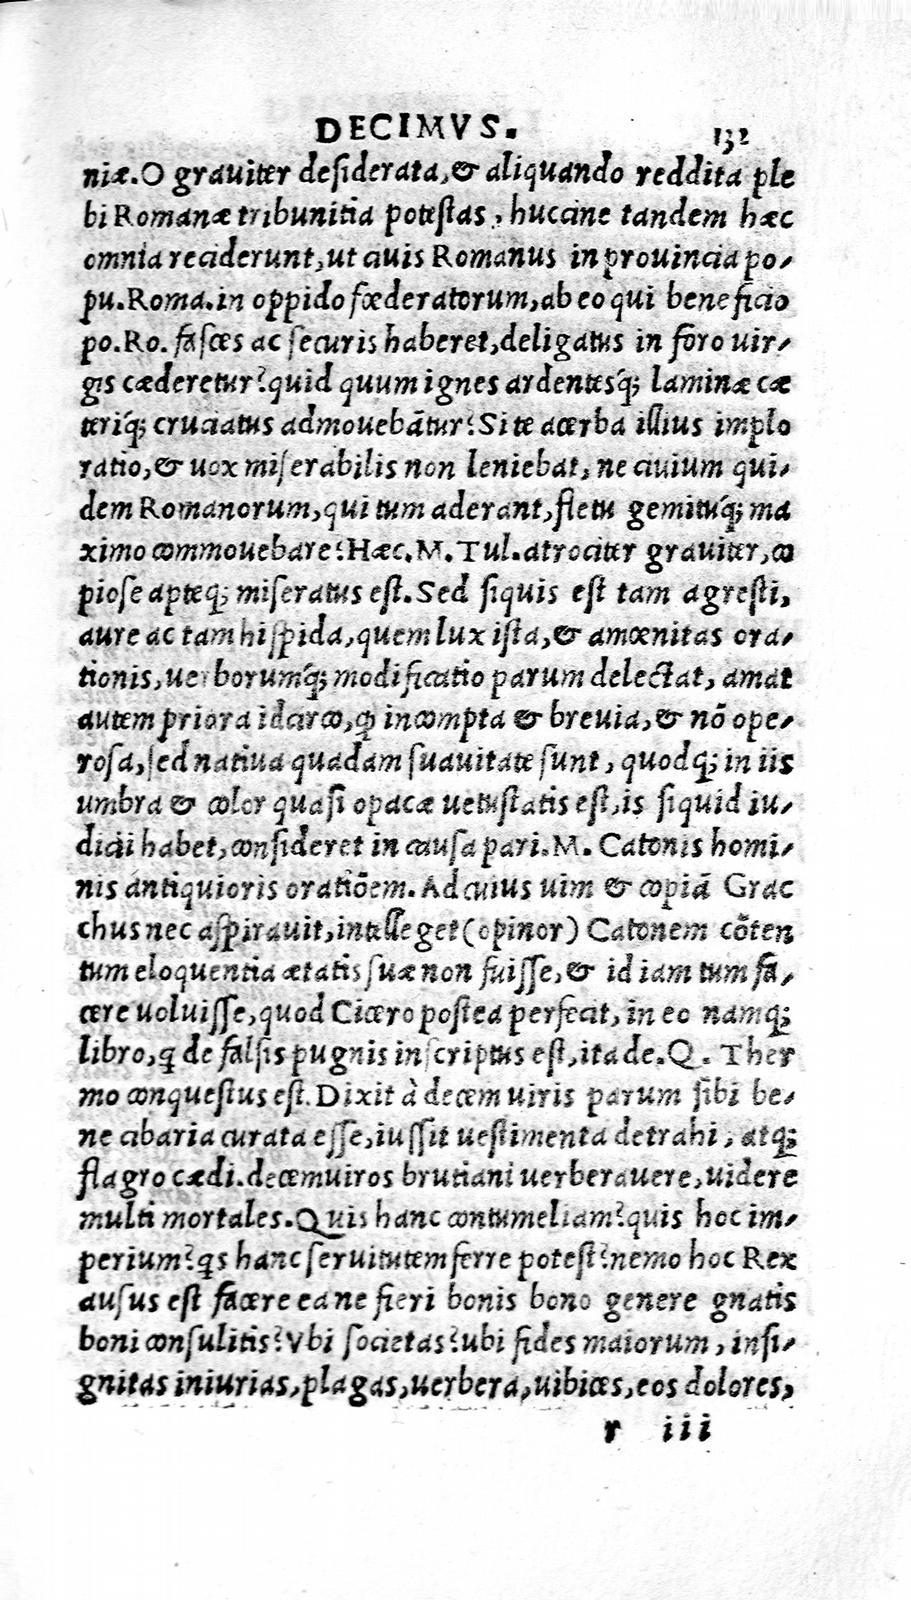 DECIMVS. 132
niæ. O grauiter desiderata, & aliquando reddita ple
bi Romanæ tribunitia potestas, huccine tandem hæc
omnia reciderunt, ut ciuis Romanus in prouincia po-
pu. Roma. in oppido fœderatorum, ab eo qui beneficio
po. Ro. fasces ac securis haberet, deligatus in foro uir-
gis cæderetur? quid quum ignes ardentesq́; laminæ cæ
teriq́; cruciatus admouebātur? Si te acerba illius implo
ratio, & uox miserabilis non leniebat, ne ciuium qui-
dem Romanorum, qui tum aderant, fletu gemituq́; ma
ximo commouebare? Hæc. M. Tul. atrociter grauiter, co
piose apteq; miseratus est. Sed siquis est tam agresti,
aure ac tam hispida, quem lux ista, & amœnitas ora-
tionis, uerborumq́; modificatio parum delectat, amat
autem priora idcirco, ꝙ incompta & breuia, & nō ope-
rosa, sed natiua quadam suauitate sunt, quodq; in iis
umbra & color quasi opacæ uetustatis est, is siquid iu-
dicii habet, consideret in causa pari. M. Catonis homi-
nis antiquioris oratiōem. Ad cuius uim & copiā Grac
chus nec aspirauit, intelleget (opinor) Catonem cōten
tum eloquentia ætatis suæ non fuisse, & id iam tum fa-
cere uoluisse, quod Cicero postea perfecit, in eo namq;
libro, ꝗ de falsis pugnis inscriptus est, ita de. Q. Ther
mo conquestus est. Dixit à decem uiris parum sibi be-
ne cibaria curata esse, iussit uestimenta detrahi, atq;
flagro cædi. decemuiros brutiani uerberauere, uidere
multi mortales. Quis hanc contumeliam? quis hoc im-
perium? ꝗs hanc seruitutem ferre potest? nemo hoc Rex
ausus est facere ea ne fieri bonis bono genere gnatis
boni consulitis? Vbi societas? ubi fides maiorum, insi-
gnitas iniurias, plagas, uerbera, uibices, eos dolores,
r iii